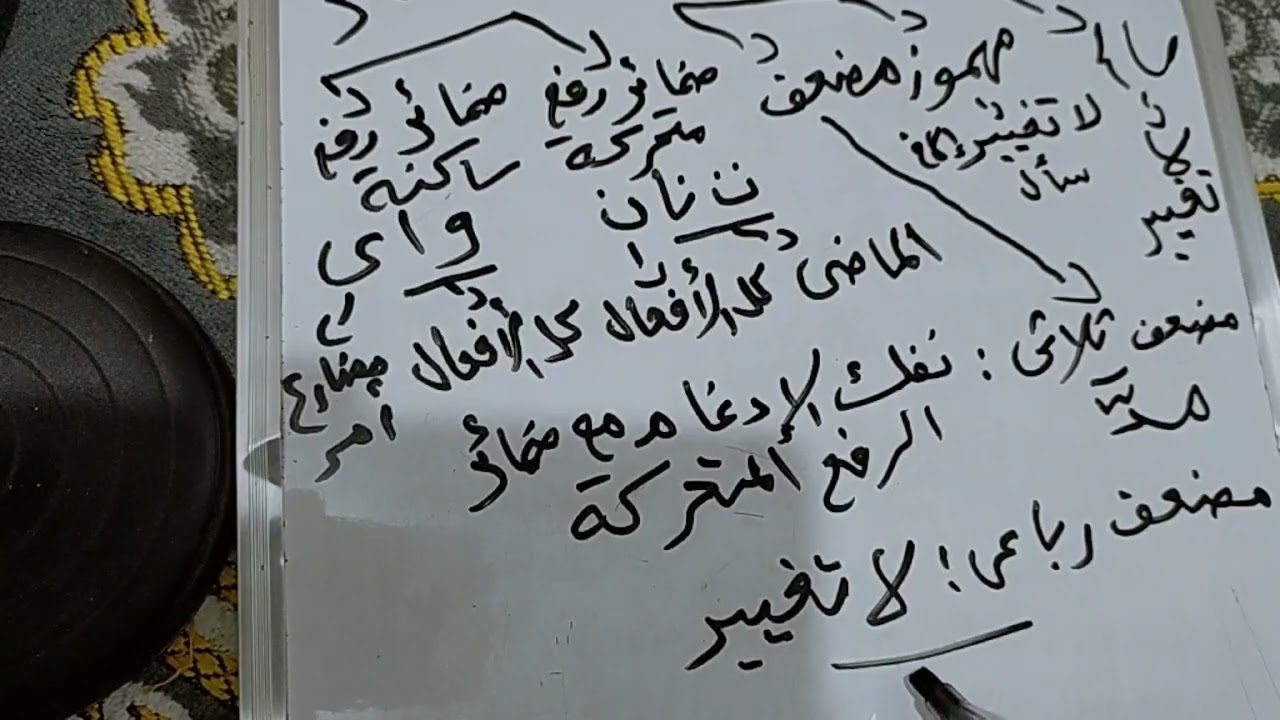 سالم مهموز مضعف ضمائر رفع ضمائر رفع
لا تغيير لا تغيير متحركة ساكنة
سأل ن نا ت و ا ى
الماضى كل الأفعال كل الأفعال مضارع
أمر
مضعف ثلاثى : نفك الإدغام مع ضمائر
مدّ الرفع المتحركة
مضعف رباعى : لا تغيير